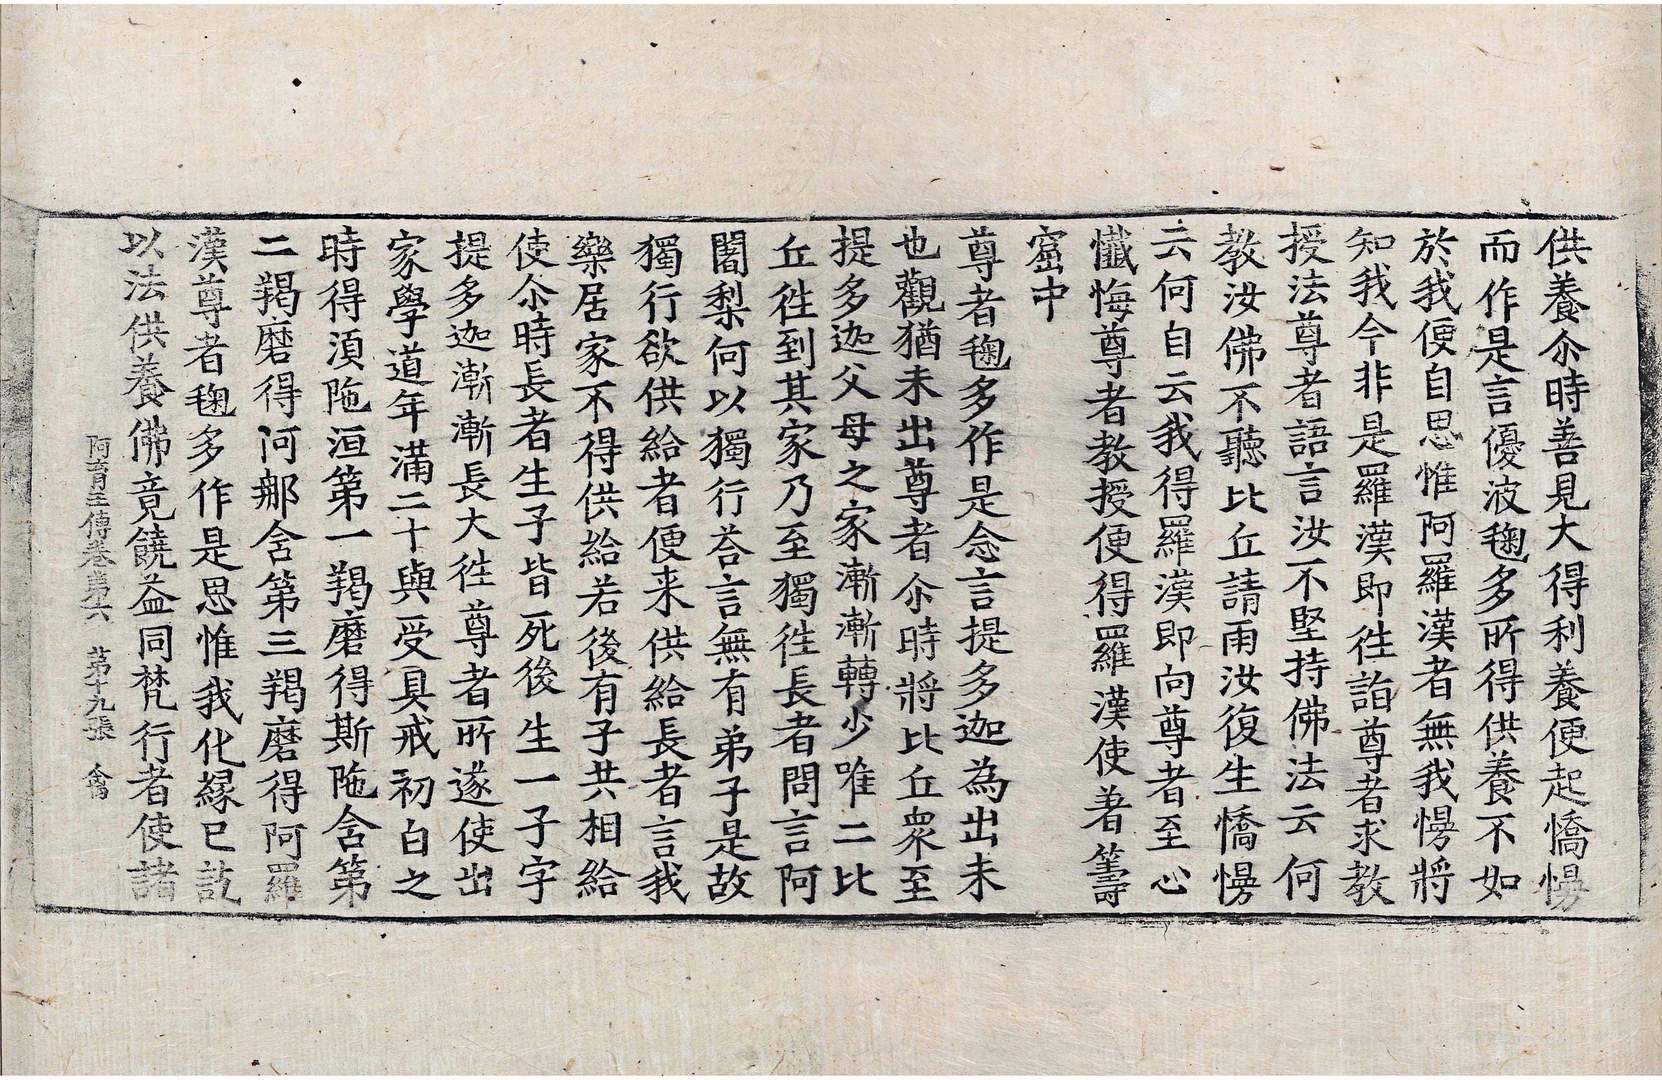 供養尒時善見大得利養便起憍慢
而作是言優波毱多所得供養不如
於我便自思惟阿羅漢者無我慢將
知我今非是羅漢即徃詣尊者求教
授法尊者語言汝不堅持佛法云何
教汝佛不聽比丘請雨汝復生憍慢
云何自云我得羅漢即向尊者至心
懺悔尊者教授便得羅漢使著籌
窟中
尊者毱多作是念言提多迦為出未
也觀猶未出尊者尒時將比丘眾至
提多迦父母之家漸漸轉少唯二比
丘徃到其家乃至獨徃長者問言阿
闍梨何以獨行荅言無有弟子是故
獨行欲供給者便来供給長者言我
樂居家不得供給若後有子共相給
使尒時長者生子皆死後生一子字
提多迦漸漸長大徃尊者所遂使出
家學道年滿二十與受具戒初白之
時得湏陁洹第一羯磨得斯陁含第
二羯磨得阿那含第三羯磨得阿羅
漢尊者毱多作是思惟我化緣已訖
以法供養佛竟饒益同梵行者使諸
阿育王傳卷第六　第十九張　禽